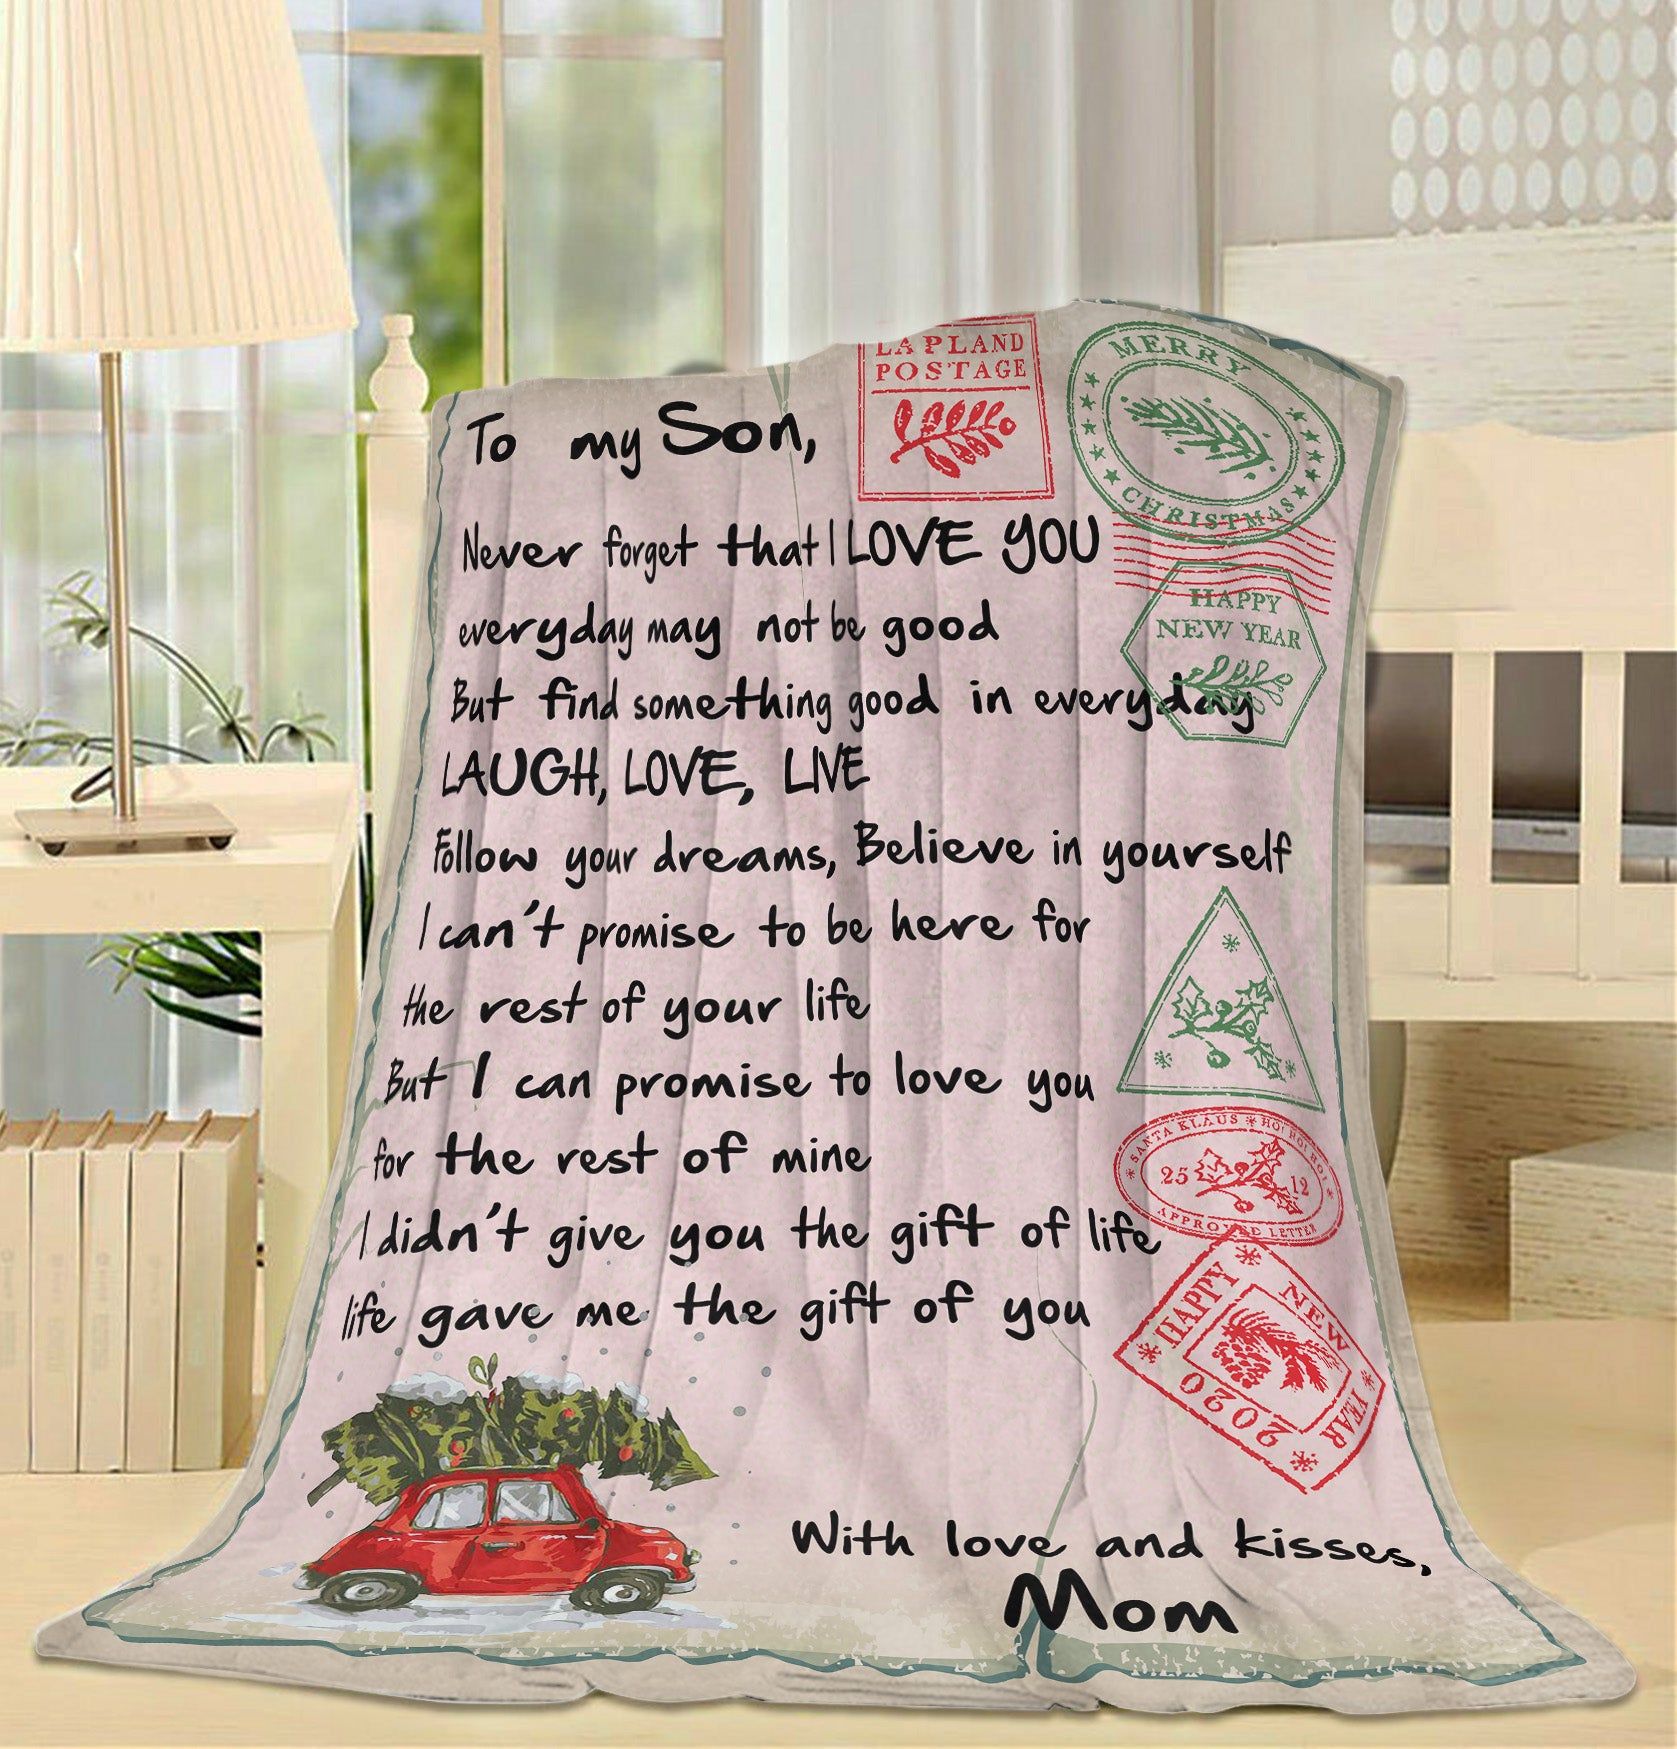 To my Son,
Never forget that I LOVE YOU
everyday may not be good
But find something good in everyday
LAUGH, LOVE, LIVE
Follow your dreams, Believe in yourself
I can't promise to be here for
the rest of your life
But I can promise to love you
for the rest of mine
I didn't give you the gift of life
life gave me the gift of you
With love and kisses,
Mom
LAPLAND
POSTAGE
MERRY
CHRISTMAS
HAPPY
NEW YEAR
SANTA KLAUS * HO! HO! HO!
25 12
APPROVED LETTER
HAPPY
NEW
YEAR
2020